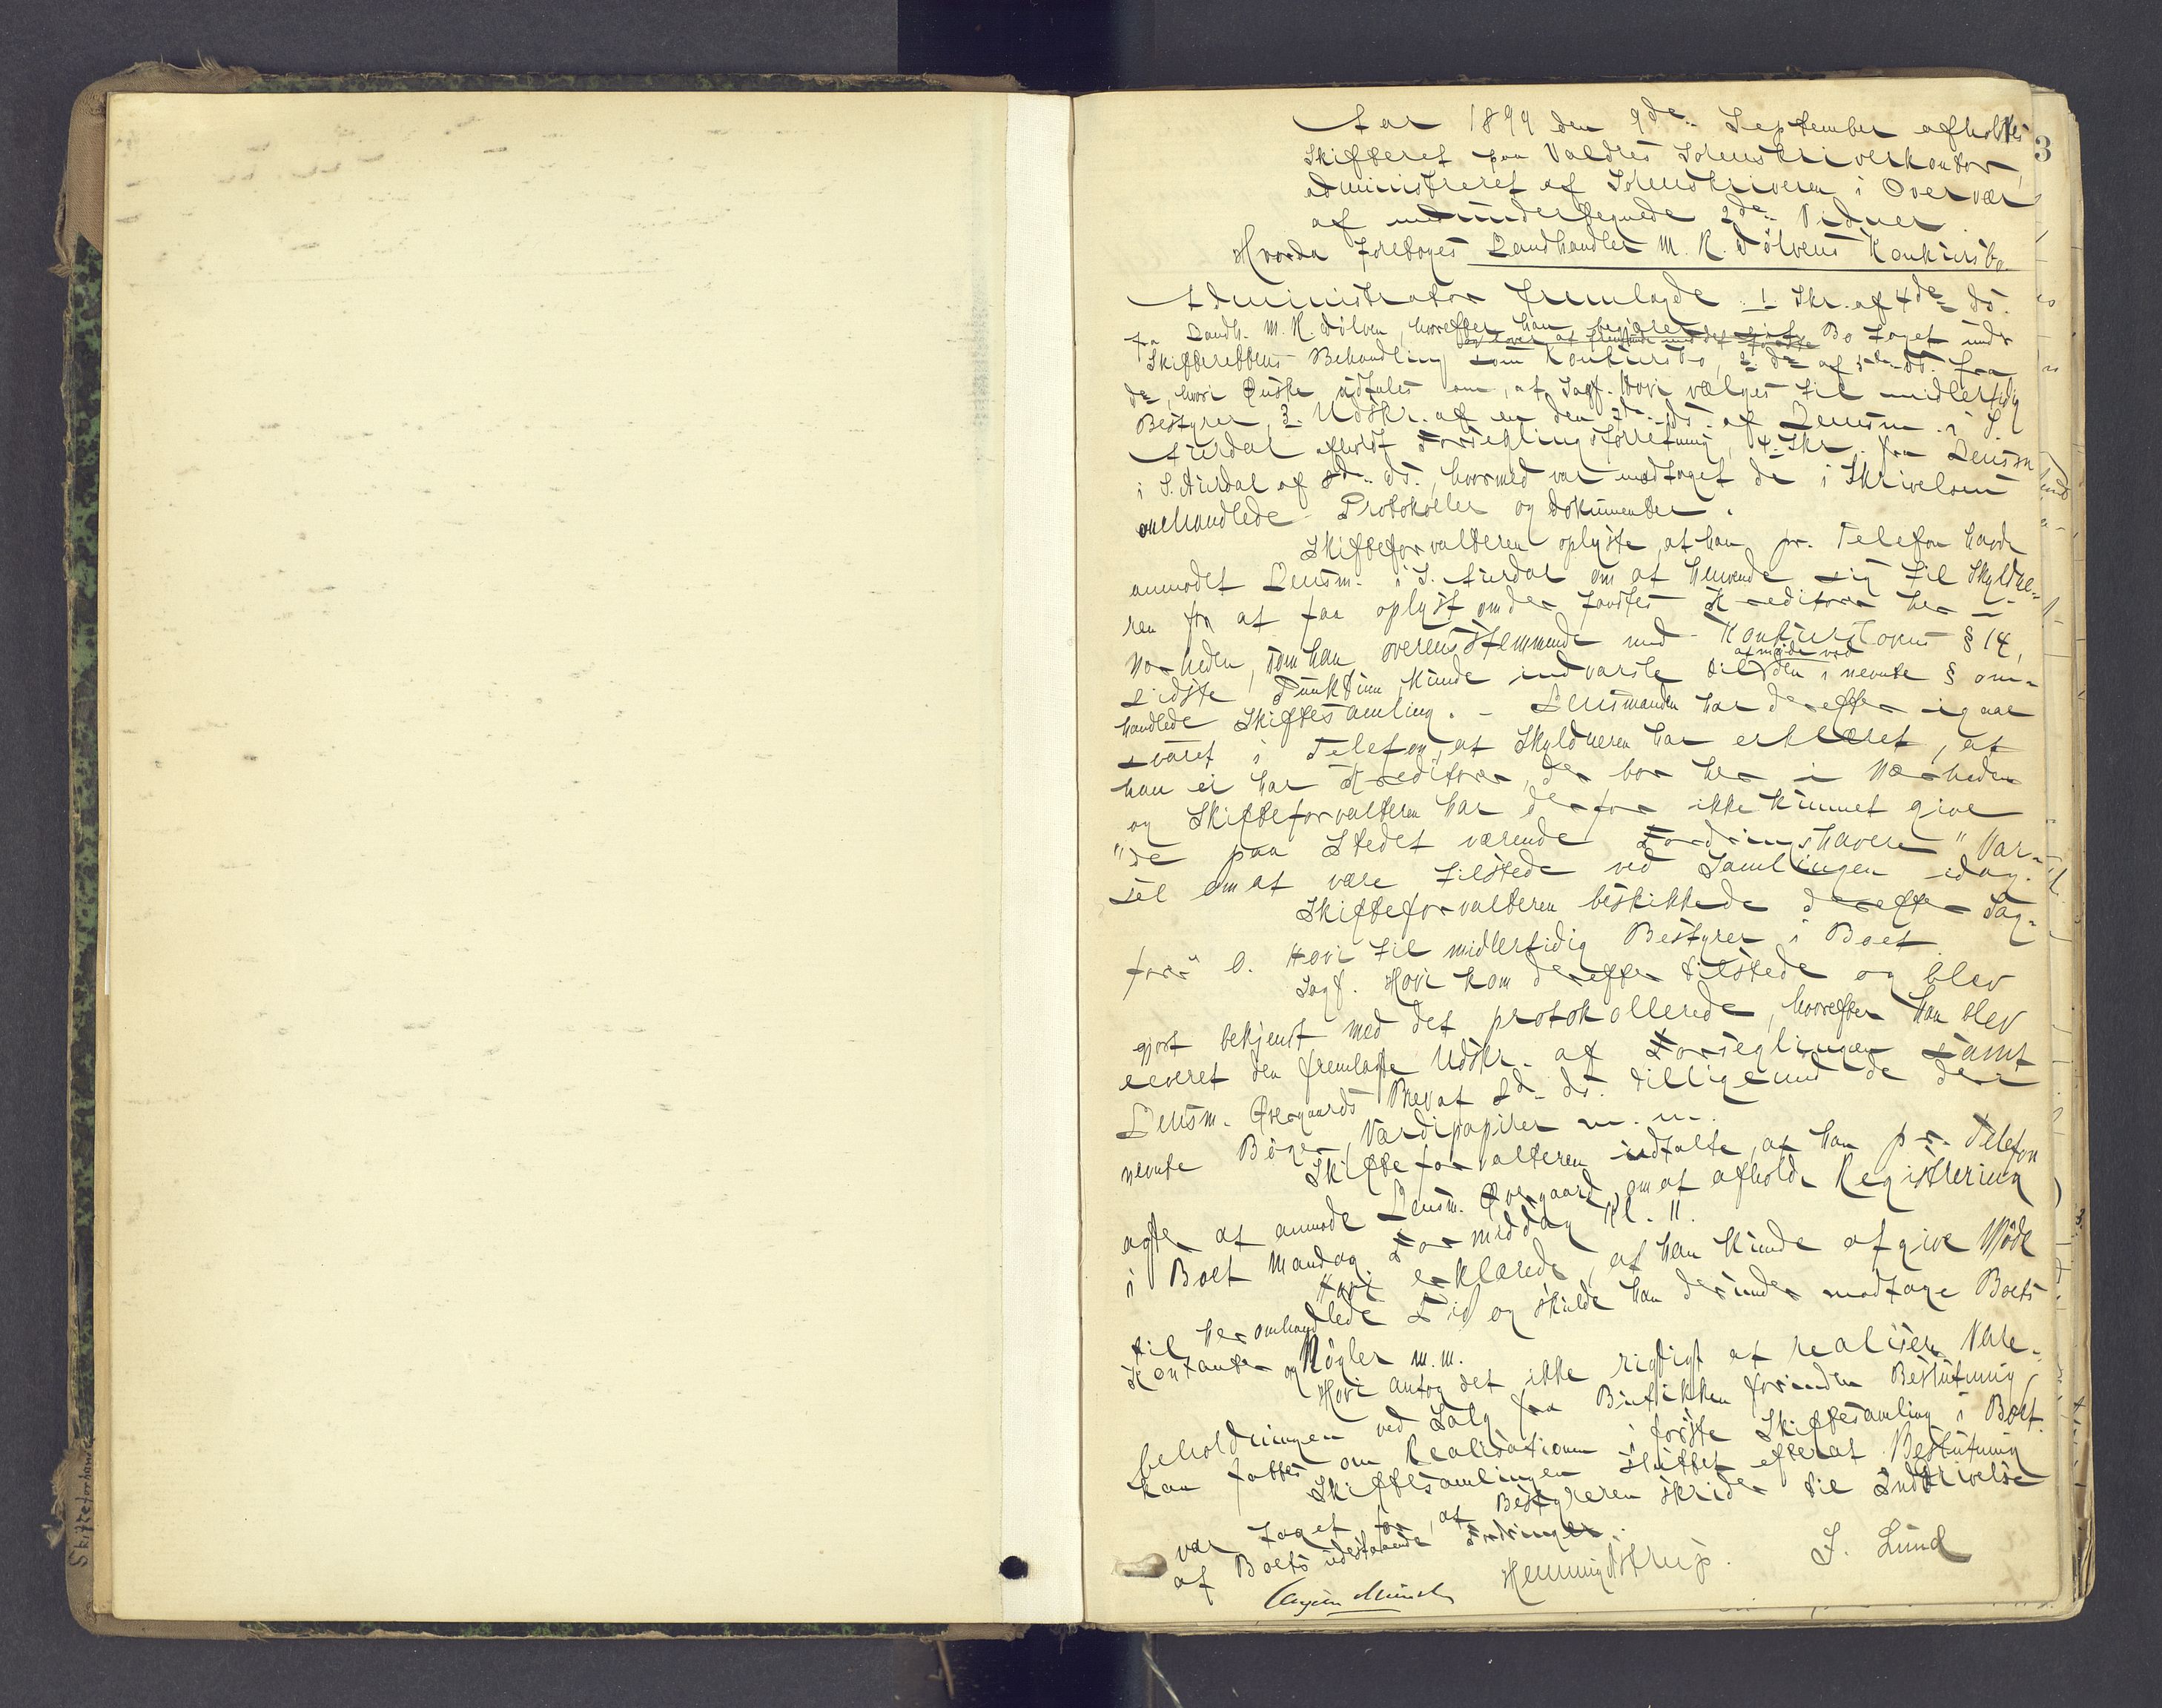 3
Aar 1899 den 9de September afholdtes
Skifteret paa Valdres Sorenskriverkontor,
administreret af Sorenskriveren i Overvær
af medundertegnede 2de Vidner.
Hvorda foretoges Landhandler M. K. Dølvens Konkursbo.
Administrator fremlagde 1 Skr. af 4de ds.
fra Landh. M. K. Dølven, hvorefter han begjærer sit Bo taget under
Skifterettens Behandling som Konkursbo, 2. do af 5te ds. fra
do, hvori Ønske udtales om, at Sagf. Hovi vælges til midlertidig
Bestyrer, 3. Udskr. af en den 7de ds. af Lensm. i S.
Aurdal afholdt Forseglingsforretning, 4. Skr. fra Lensm
i S. Aurdal af 8de ds., hvormed var modtaget de i Skrivelsen
omhandlede Protokoller og Dokumenter.
Skifteforvalteren oplyste, at han pr. Telefon havde
anmodet Lensm. i S. Aurdal om at henvende sig til Skyldne-
ren for at faa oplyst om der fandtes Kreditorer her i
Nærheden, som han overensstemmende med Konkurslovens § 14,
sidste Punktum kunde indvarsle til at møde ved den i nevnte § om-
handlede Skiftesamling. - Lensmanden har derefter igaar
svaret i Telefon, at Skyldneren har erklæret, at
han ei har Kreditorer, der bor her i Nærheden
og Skifteforvalteren har derfor ikke kunnet give
"de paa Stedet værende Fordringshavere" Var-
sel om at være tilstede ved Samlingen idag.
Skifteforvalteren beskikkede derefter Sag-
fører O. Hovi til midlertidig Bestyrer i Boet.
Sagf. Hovi kom derefter tilstede og blev
gjort bekjent med det protokollerede, hvorefter han blev
leveret den fremlagte Udskr. af Forseglingen samt
Lensm. Øvergaards Brev af 8de ds. tilligemed de deri
nevnte Bøger, Værdipapirer m. m.
Skifteforvalteren udtalte, at han pr. Telefon
agter at anmode Lensm. Øvergaard om at afholde Registrering
i Boet Mandag Formiddag Kl. 11.
Hovi erklærede, at han kunde afgive Møde
til her omhandlede Tid og skulde han derunder modtage Boets
Kontanter og Nøgler m.m.
Hovi antog det ikke rigtigt at realisere Vare-
beholdningen ved Salg fra Butikken forinden Beslutning
kan fattes om Realisationen i første Skiftesamling i Boet.
Skiftesamlingen sluttet efterat Beslutning
var taget for, at Bestyreren skrider til Inddrivelse
af Boets udestaaende Fordringer.
Hemmingstrup. J. Lund
Münch
Skifteforhand